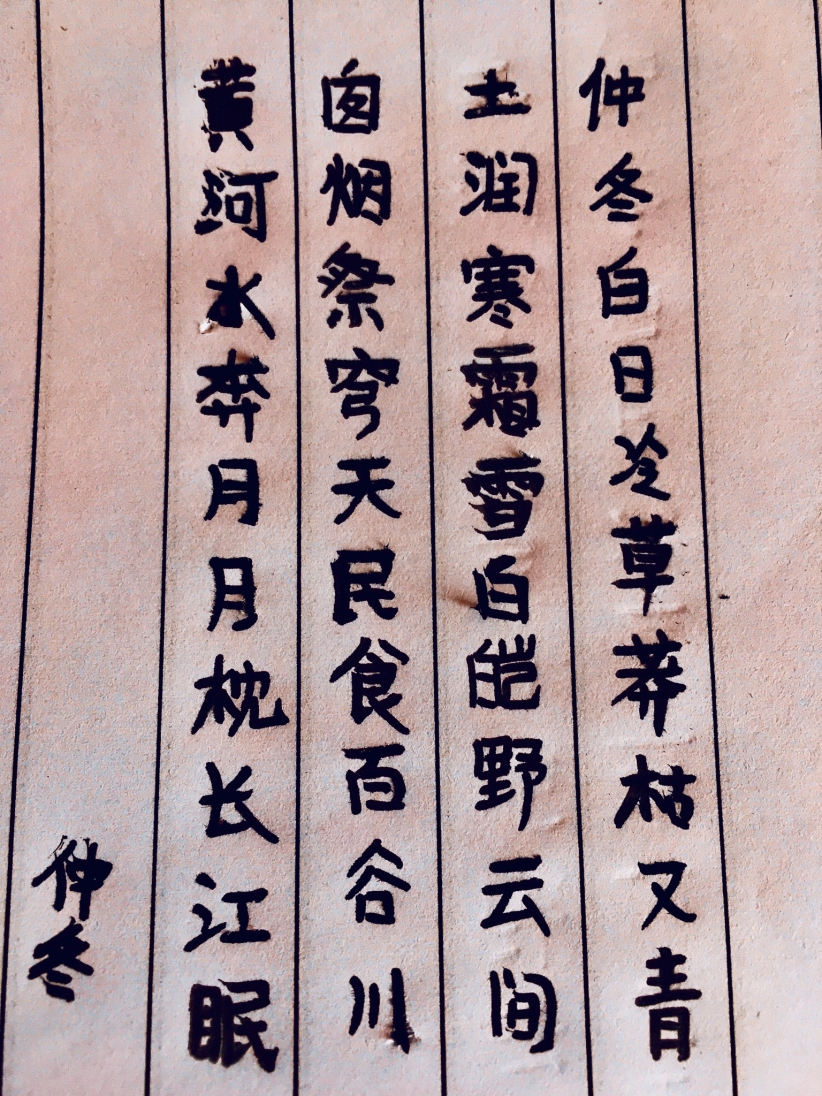 仲冬白日冷草莽枯又青
土润寒霜雪白皑野云间
囱烟祭穹天民食百谷川
黄河水奔月月枕长江眠
仲冬